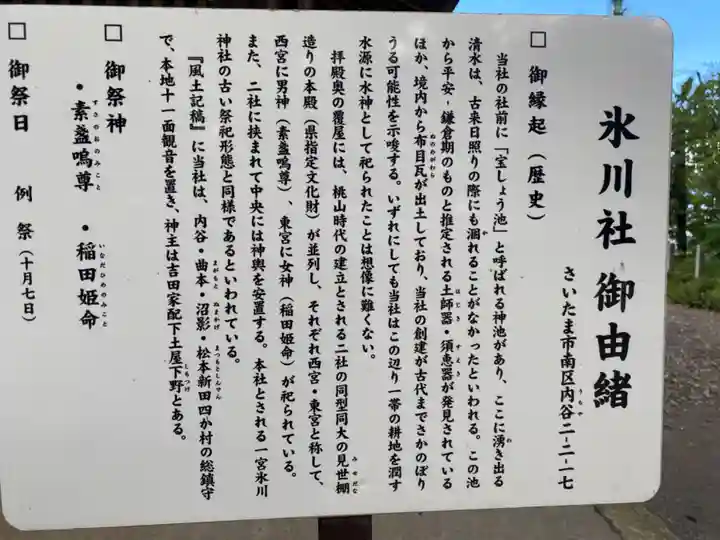 氷川社 御由緒
さいたま市南区内谷二-二-一七
うちや
□ 御縁起（歴史）
当社の社前に「宝しょう池」と呼ばれる神池があり、ここに湧き出る
わ
清水は、古来日照りの際にも涸れることがなかったといわれる。この池
か
から平安-鎌倉期のものと推定される土師器・須恵器が発見されている
はじき すえき
ほか、境内から布目瓦が出土しており、当社の創建が古代までさかのぼり
ぬのめがわら
うる可能性を示唆する。いずれにしても当社はこの辺り一帯の耕地を潤す
水源に水神として祀られたことは想像に難くない。
拝殿奥の覆屋には、桃山時代の建立とされる二社の同型同大の見世棚
みせだな
造りの本殿（県指定文化財）が並列し、それぞれ西宮・東宮と称して、
西宮に男神（素盞嗚尊）、東宮に女神（稲田姫命）が祀られている。
また、二社に挟まれて中央には神輿を安置する。本社とされる一宮氷川
神社の古い祭祀形態と同様であるといわれている。
『風土記稿』に当社は、内谷・曲本・沼影・松本新田四か村の総鎮守
まがもと ぬまかげ まつもとしんでん
で、本地十一面観音を置き、神主は吉田家配下土屋下野とある。
しもつけ
□ 御祭神
・素盞嗚尊 ・稲田姫命
すさのおのみこと いなだひめのみこと
□ 御祭日 例祭（十月七日）